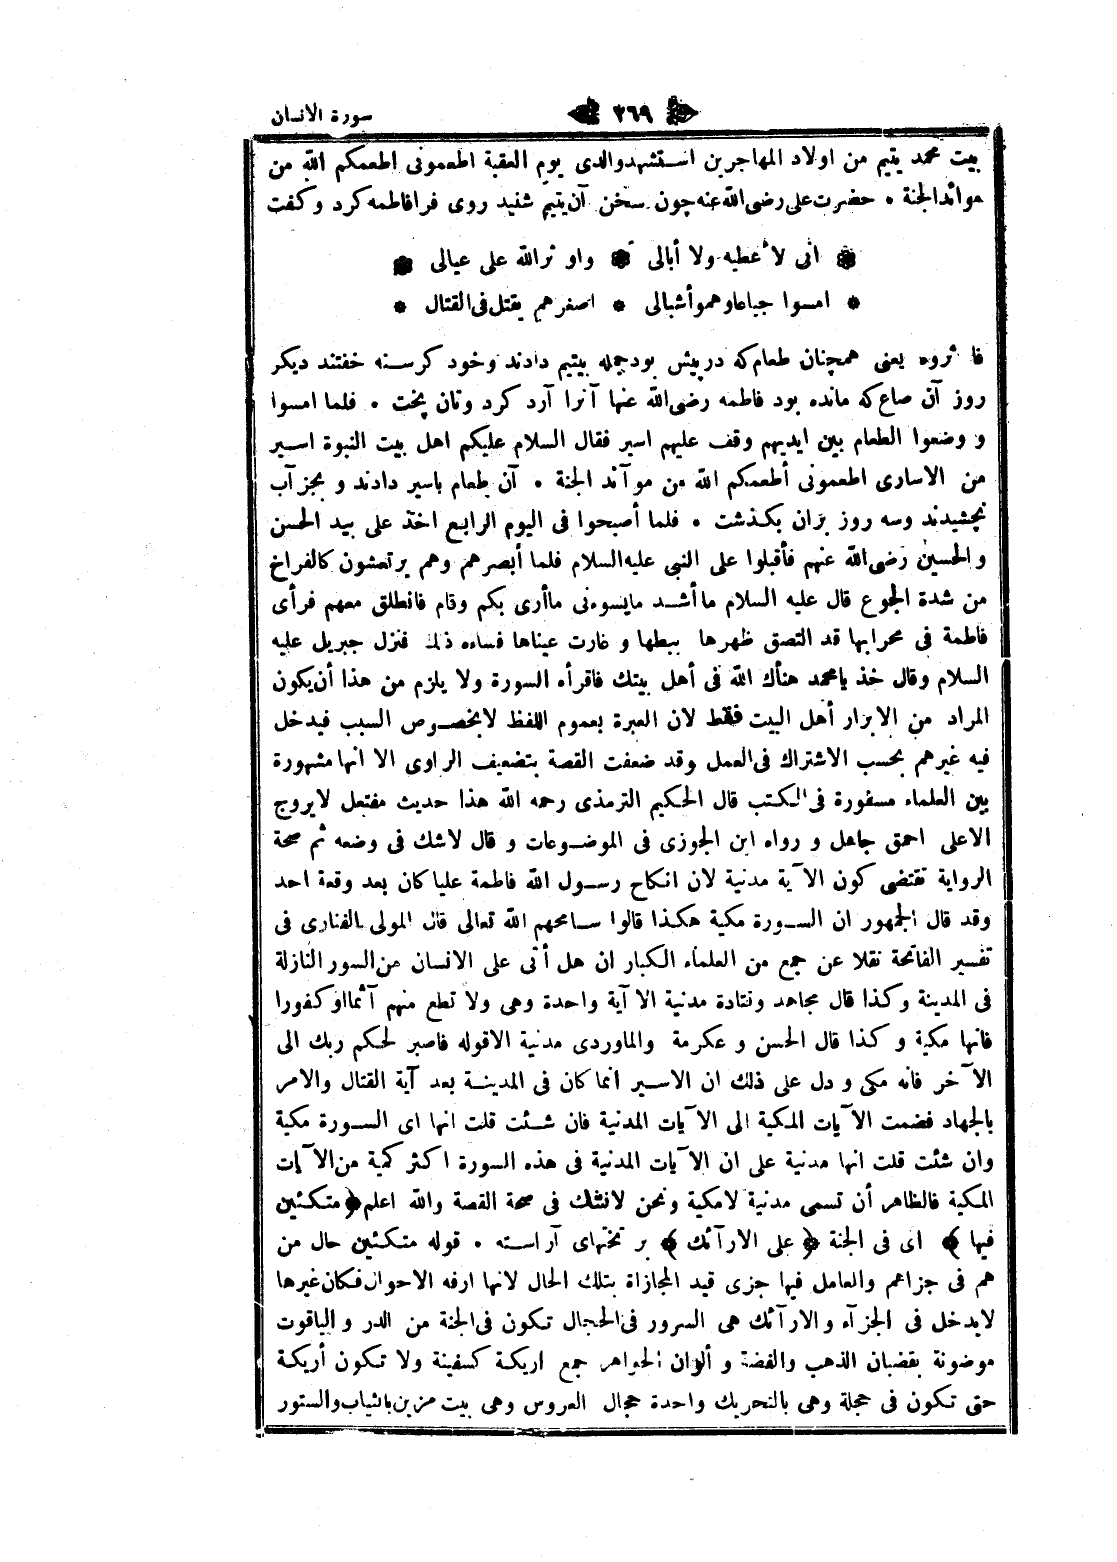 سورة الانسان
٢٦٩
بيت محمد يتيم من اولاد المهاجرين استشهد والدى يوم العقبة اطعمونى اطعمكم الله من
موائد الجنة • حضرت على رضى الله عنه چون سخن آن يتيم شنيد روى فرا فاطمه كرد وكفت
انى لأعطيه ولا أبالى واوثر الله على عيالى
امسوا جياعا وهمو أشبالى * اصغرهم يقتل فى القتال *
فآثروه يعنى همچنان طعام كه درپيش بود جمله بيتيم دادند وخود كرسنه خفتند ديكر
روز آن صاع كه مانده بود فاطمه رضى الله عنها آنرا آرد كرد ونان پخت • فلما امسوا
ووضعوا الطعام بين ايديهم وقف عليهم اسير فقال السلام عليكم اهل بيت النبوة اسير
من الاسارى اطعمونى أطعمكم الله من موآئد الجنة • آن طعام باسير دادند و بجز آب
نچشيدند وسه روز بران بكذشت • فلما أصبحوا فى اليوم الرابع اخذ على بيد الحسن
والحسين رضى الله عنهم فأقبلوا على النبى عليه السلام فلما أبصرهم وهم يرتعشون كالفراخ
من شدة الجوع قال عليه السلام ما أشد مايسوءنى ما أرى بكم وقام فانطلق معهم فرأى
فاطمة فى محرابها قد التصق ظهرها ببطها و غارت عيناها فساءه ذلك فنزل جبريل عليه
السلام وقال خذ يا محمد هنأك الله فى أهل بيتك فاقرأه السورة ولا يلزم من هذا أن يكون
المراد من الابرار أهل البيت فقط لان العبرة بعموم اللفظ لا بخصوص السبب فيدخل
فيه غيرهم بحسب الاشتراك فى العمل وقد ضعفت القصة بتضعيف الراوى الا انها مشهورة
بين العلماء مسفورة فى الكتب قال الحكيم الترمذى رحمه الله هذا حديث مفتعل لايروج
الاعلى احمق جاهل و رواه ابن الجوزى فى الموضوعات و قال لاشك فى وضعه ثم صحة
الرواية تقتضى كون الآية مدنية لان انكاح رسول الله فاطمة عليا كان بعد وقعة احد
وقد قال الجمهور ان السورة مكية هكذا قالوا سامحهم الله تعالى قال المولى الفنارى فى
تفسير الفاتحة نقلا عن جمع من العلماء الكبار ان هل أتى على الانسان من السور النازلة
فى المدينة وكذا قال مجاهد وقتادة مدنية الا آية واحدة وهى ولا تطع منهم آثما او كفورا
فانها مكية و كذا قال الحسن و عكرمة والماوردى مدنية الاقوله فاصبر لحكم ربك الى
الآخر فانه مكى و دل على ذلك ان الاسير انما كان فى المدينة بعد آية القتال والامر
بالجهاد فضمت الآيات المكية الى الآيات المدنية فان شئت قلت انها اى السورة مكية
وان شئت قلت انها مدنية على ان الآيات المدنية فى هذه السورة اكثر كمية من الآيات
المكية فالظاهر أن تسمى مدنية لامكية ونحن لانشك فى صحة القصة والله اعلم ﴿متكئين
فيها﴾ اى فى الجنة ﴿على الارآئك﴾ بر تختهاى آراسته • قوله متكئين حال من
هم فى جزاهم والعامل فيها جزى قيد المجازاة بتلك الحال لانها ارفه الاحوال فكان غيرها
لايدخل فى الجزآء والارآئك هى السرور فى الحجال تكون فى الجنة من الدر والياقوت
موضونة بقضبان الذهب والفضة و ألوان الجواهر جمع اريكة كسفينة ولا تكون أريكة
حتى تكون فى حجلة وهى بالتحريك واحدة حجال العروس وهى بيت مزين بالثياب والستور